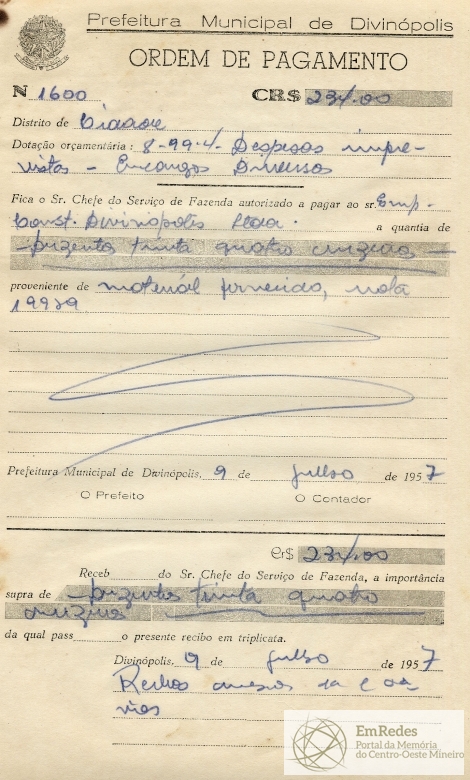 Prefeitura Municipal de Divinópolis
ORDEM DE PAGAMENTO
N 1600 CR$ 234,00
Distrito de Cidade
Dotação orçamentária: 8-99-4 Despesas impre-
vistas - Encargos Diversos
Fica o Sr. Chefe do Serviço de Fazenda autorizado a pagar ao sr. Emp.
Const. Divinópolis Ltda. a quantia de
duzentos trinta quatro cruzeiros
proveniente de material fornecido, nota
19929
Prefeitura Municipal de Divinópolis, 9 de julho de 1957
O Prefeito O Contador
Cr$ 234,00
Receb do Sr. Chefe do Serviço de Fazenda, a importância
supra de duzentos trinta quatro
cruzeiros
da qual pass o presente recibo em triplicata.
Divinópolis, 9 de julho de 1957
Recibos anexos 1a e 2a
vias
EmRedes
Portal da Memória
do Centro-Oeste Mineiro